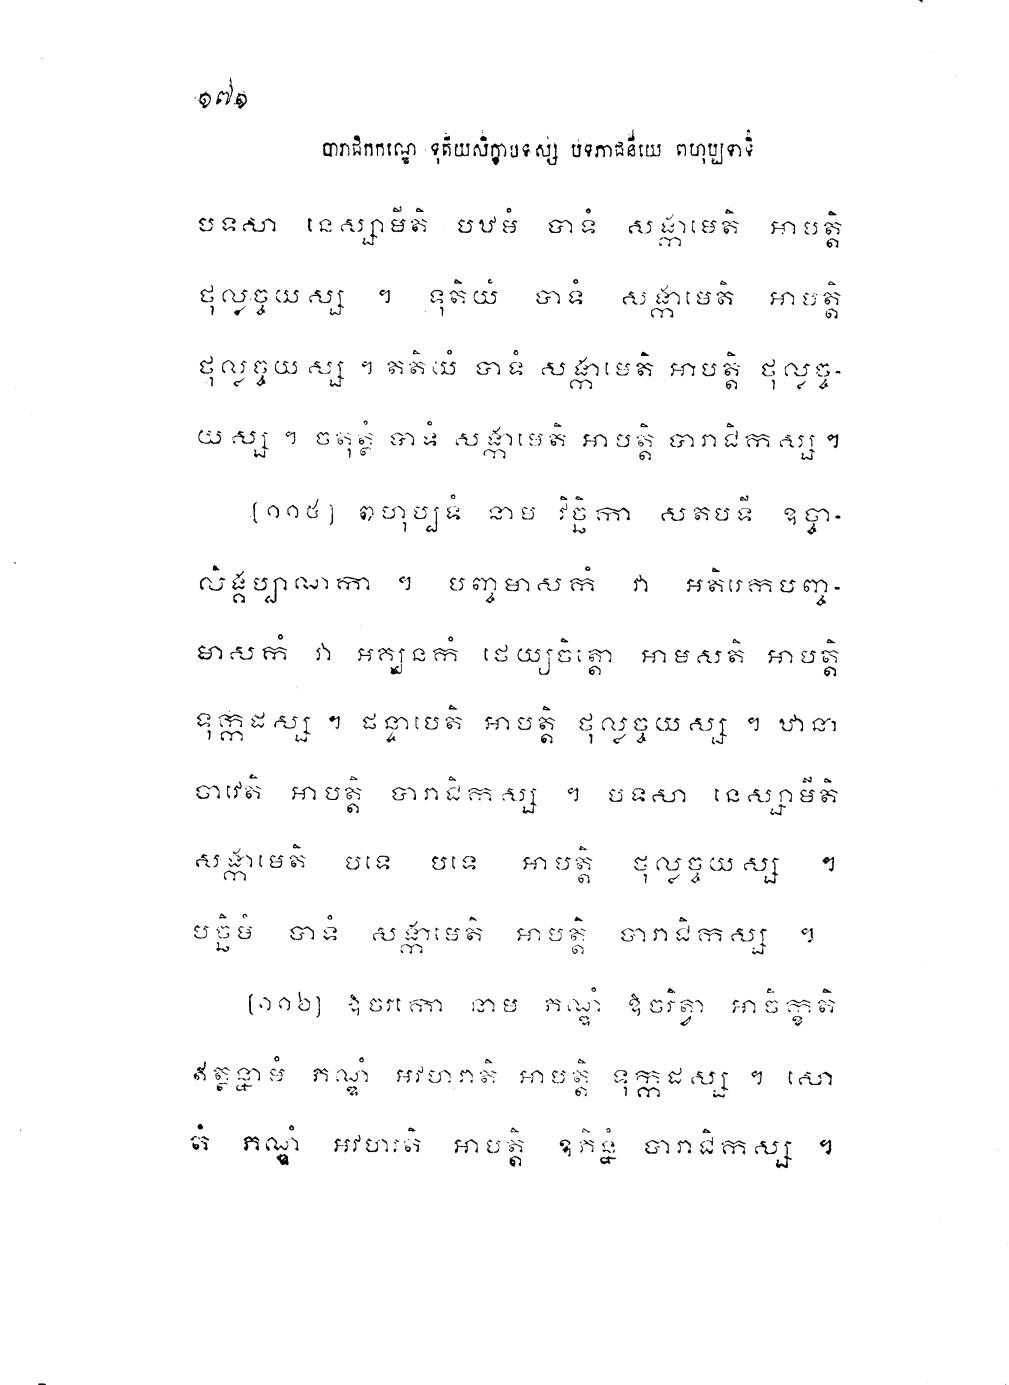 ១៧១
បារាជិកកណ្ឌេ ទុតិយសិក្ខាបទស្ស បទភាជនីយេ ពហុប្បទាទិ
បទសា នេស្សាមីតិ បឋមំ បាទំ សង្កាមេតិ អាបត្តិ
ថុល្លច្ចយស្ស ។ ទុតិយំ បាទំ សង្កាមេតិ អាបត្តិ
ថុល្លច្ចយស្ស ។ តតិយំ បាទំ សង្កាមេតិ អាបត្តិ ថុល្លច្ច-
យស្ស ។ ចតុត្ថំ បាទំ សង្កាមេតិ អាបត្តិ បារាជិកស្ស ។
[១១៥] ពហុប្បទំ នាម វិច្ឆិកា សតបទី ឧច្ចា-
លិង្គប្បាណកា ។ បញ្ចមាសកំ វា អតិរេកបញ្ច-
មាសកំ វា អគ្ឃនកំ ថេយ្យចិត្តោ អាមសតិ អាបត្តិ
ទុក្កដស្ស ។ ផន្ទាបេតិ អាបត្តិ ថុល្លច្ចយស្ស ។ ឋានា
ចាវេតិ អាបត្តិ បារាជិកស្ស ។ បទសា នេស្សាមីតិ
សង្កាមេតិ បទេ បទេ អាបត្តិ ថុល្លច្ចយស្ស ។
បច្ឆិមំ បាទំ សង្កាមេតិ អាបត្តិ បារាជិកស្ស ។
[១១៦] ឱចរកោ នាម ភណ្ឌំ ឱចរិត្វា អាចិក្ខតិ
ឥត្ថន្នាមំ ភណ្ឌំ អវហរាតិ អាបត្តិ ទុក្កដស្ស ។ សោ
តំ ភណ្ឌំ អវហរតិ អាបត្តិ ឧភិន្នំ បារាជិកស្ស ។